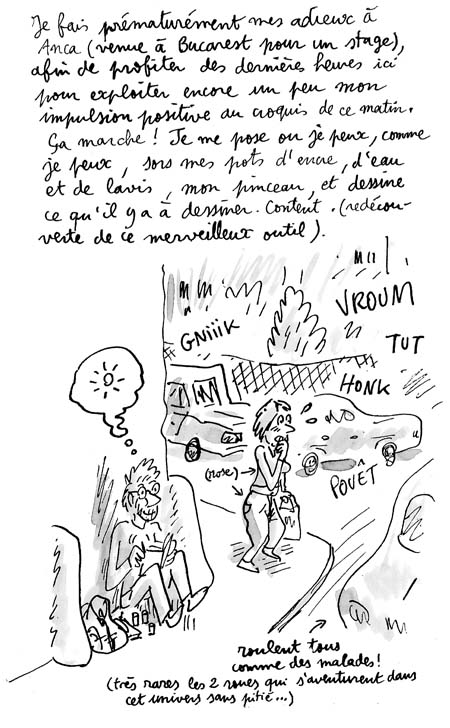 Je fais prématurément mes adieux à
Anca (venue à Bucarest pour un stage),
afin de profiter des dernières heures ici
pour exploiter encore un peu mon
impulsion positive au croquis de ce matin.
Ça marche ! Je me pose ou je peux, comme
je peux, sors mes pots d'encre, d'eau
et de lavis, mon pinceau, et dessine
ce qu'il y a à dessiner. Content. (redécou-
verte de ce merveilleux outil).
GNiiiK
VROUM
TUT
HONK
(rose)
POUËT
roulent tous
comme des malades !
(très rares les 2 roues qui s'aventurent dans
cet univers sans pitié...)